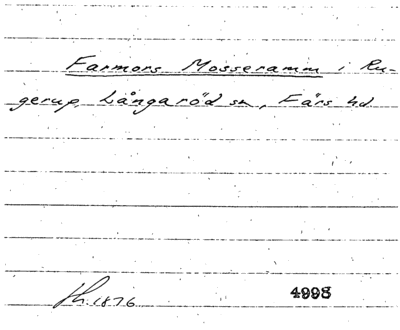 Farmors Mosseramm i Ru-
gerup, Långaröd sn, Färs hd.
fh. 1876 4998